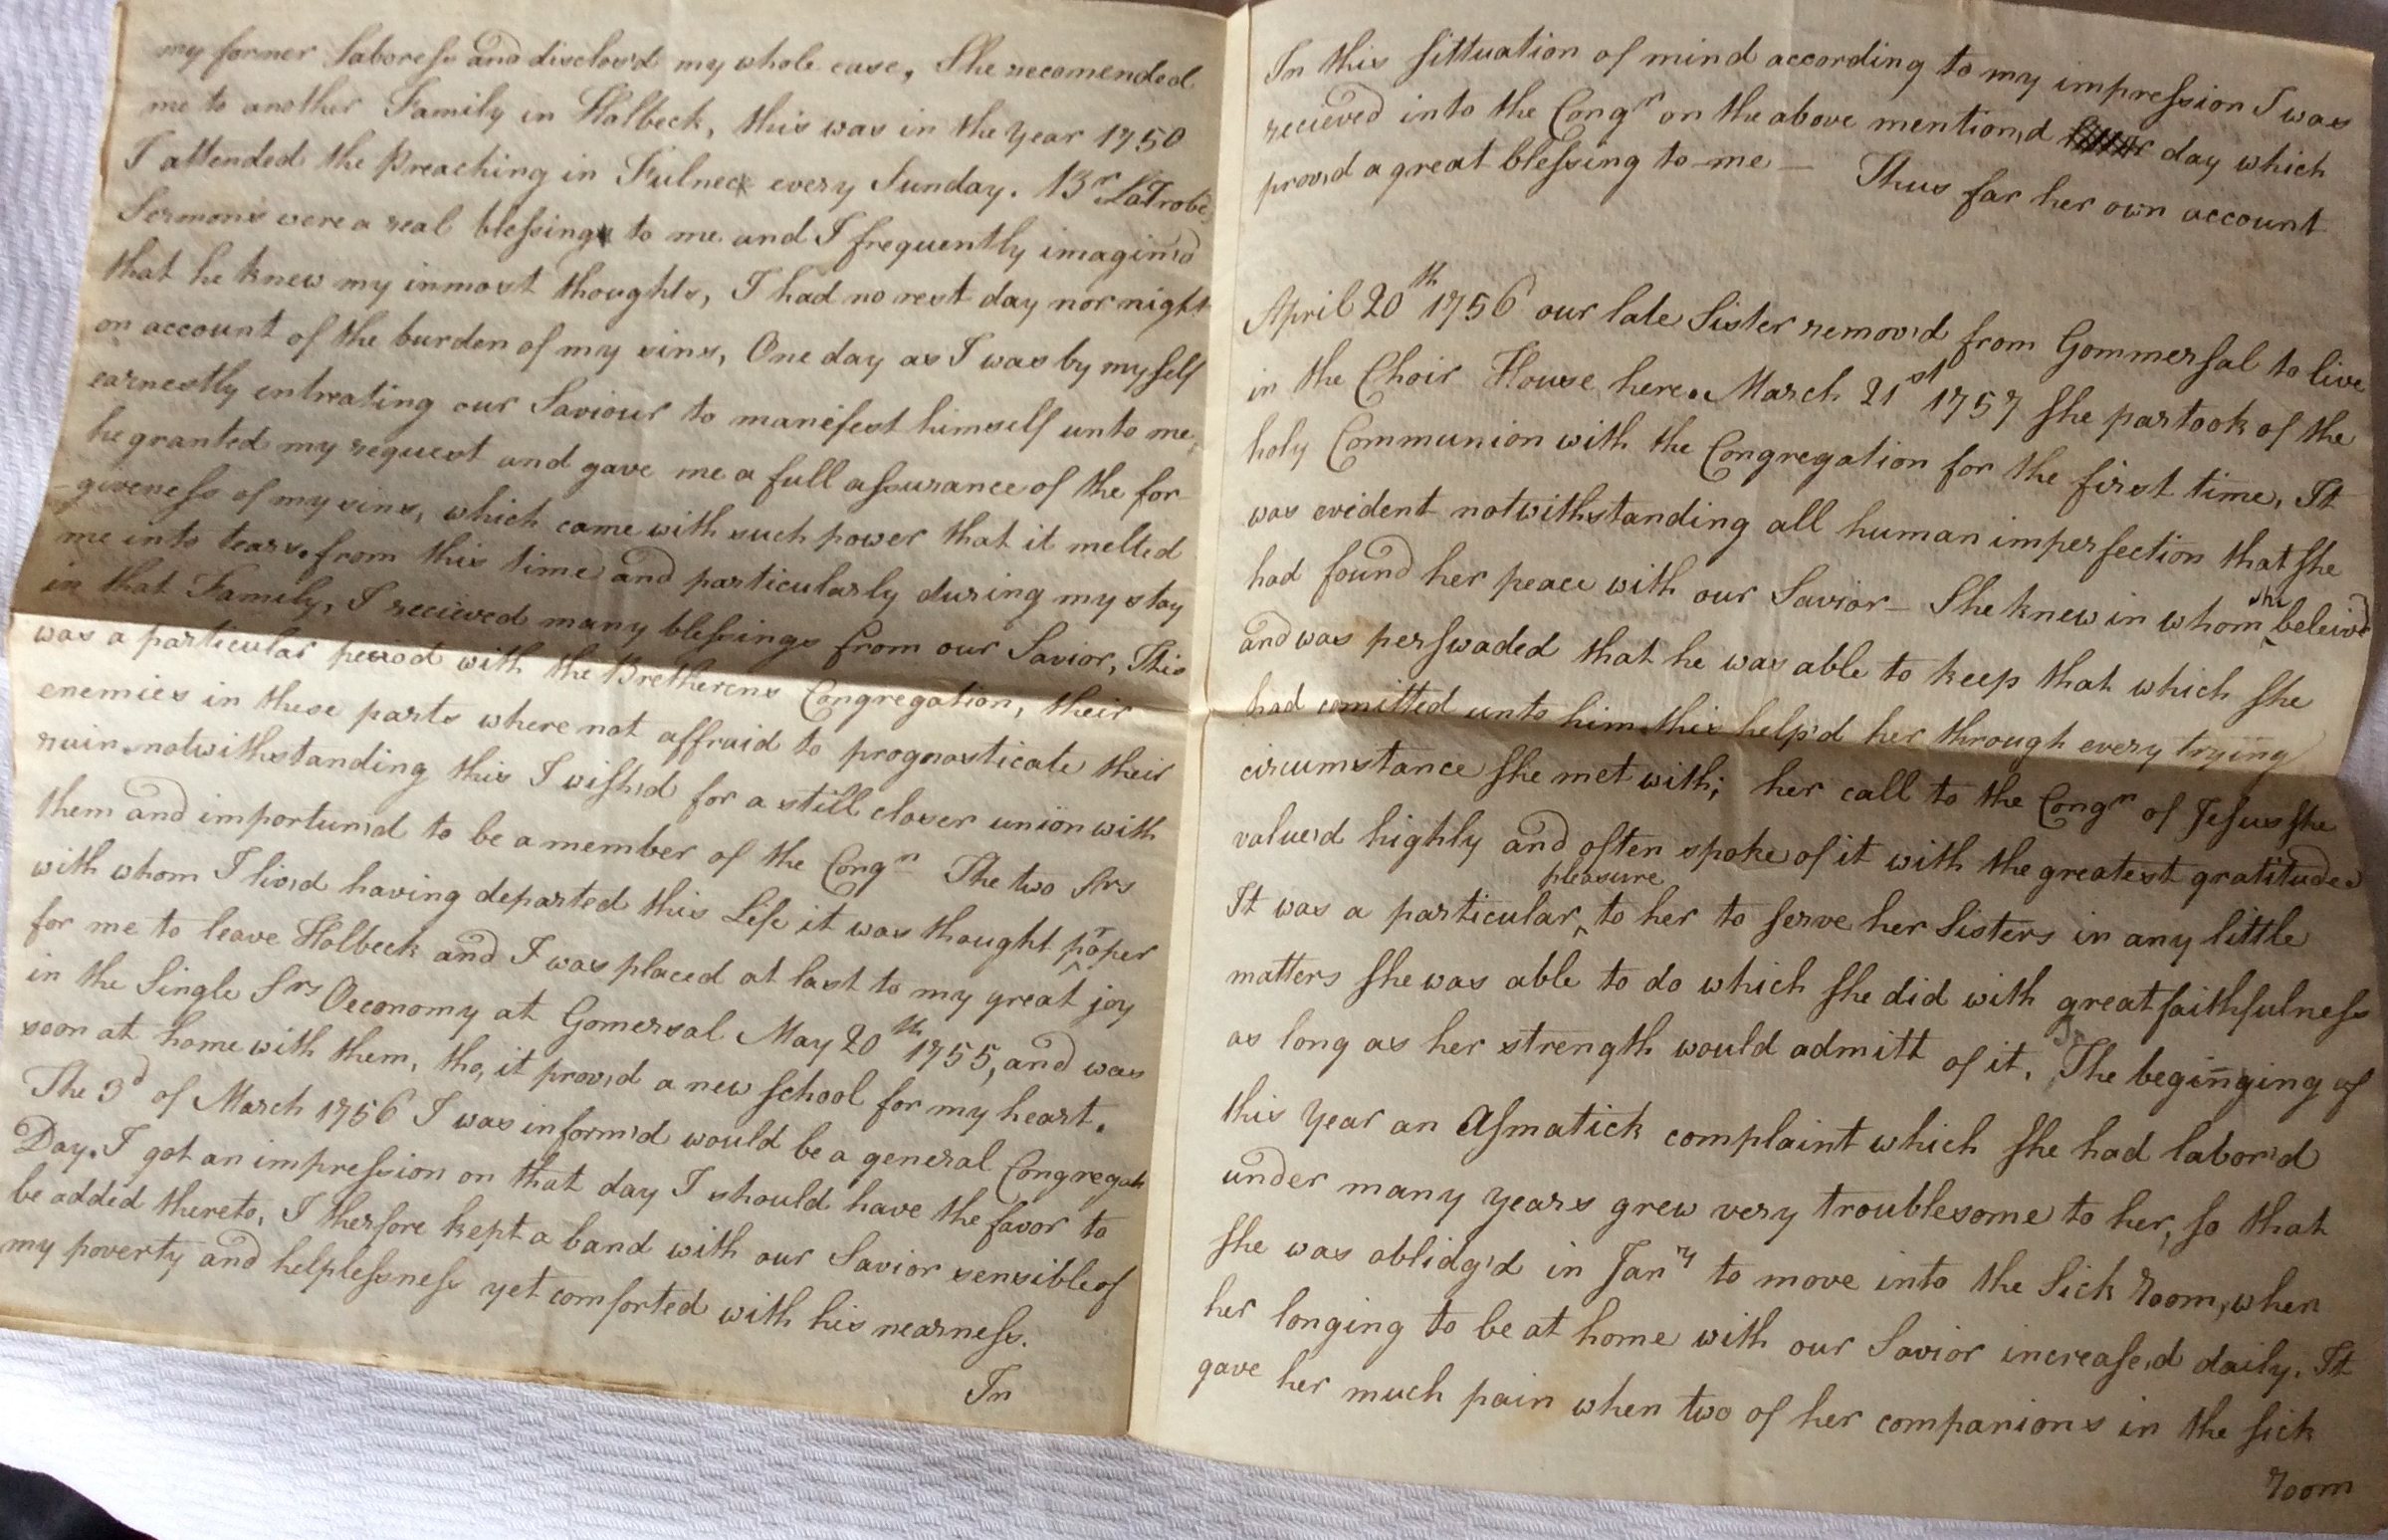 my former Laboress and disclos'd my whole case, She recomended
me to another Family in Holbeck, this was in the Year 1750
I attended the Preaching in Fulneck every Sunday. Br LaTrobe
Sermons were a real blessing to me and I frequently imagin'd
that he knew my inmost thoughts, I had no rest day nor night
on account of the burden of my sins, One day as I was by my self
earnestly intreating our Saviour to manifest himself unto me,
he granted my request and gave me a full assurance of the for-
giveness of my sins, which came with such power that it melted
me into tears. from this time and particularly during my stay
in that Family, I recieved many blessings from our Savior, This
was a particular period with the Bretherens Congregation, their
enemies in these parts where not affraid to prognosticate their
ruin. notwithstanding this I wish'd for a still closer union with
them and importun'd to be a member of the Congn The two Srs
with whom I liv'd having departed this Life it was thought proper
for me to leave Holbeck and I was placed at last to my great joy
in the Single Srs Oeconomy at Gomersal May 20th 1755, and was
soon at home with them, tho, it prov'd a new school for my heart.
The 3d of March 1756 I was inform'd would be a general Congregatn
Day. I got an impression on that day I should have the favor to
be added thereto, I therfore kept a band with our Savior sensible of
my poverty and helplessness yet comforted with his nearness.
In
In this sittuation of mind according to my impression I was
recieved into the Congn on the above mention'd day which
prov'd a great blessing to me — Thus far her own account
April 20th 1756 our late Sister remov'd from Gommersal to live
in the Choir House here. March 21st 1757 she partook of the
holy Communion with the Congregation for the first time, It
was evident notwithstanding all human imperfection that she
had found her peace with our Savior — She knew in whom she beleiv'd
and was perswaded that he was able to keep that which she
had comitted unto him this help'd her through every trying
circumstance she met with; her call to the Congn of Jesus she
valued highly and often spoke of it with the greatest gratitude
It was a particular pleasure to her to serve her Sisters in any little
matters she was able to do which she did with great faithfulness
as long as her strength would admitt of it. The begining of
this Year an Asmatick complaint which she had labor'd
under many years grew very troublesome to her, so that
she was oblidg'd in Janry to move into the Sick room, when
her longing to be at home with our Savior increase'd daily. It
gave her much pain when two of her companions in the sick
room